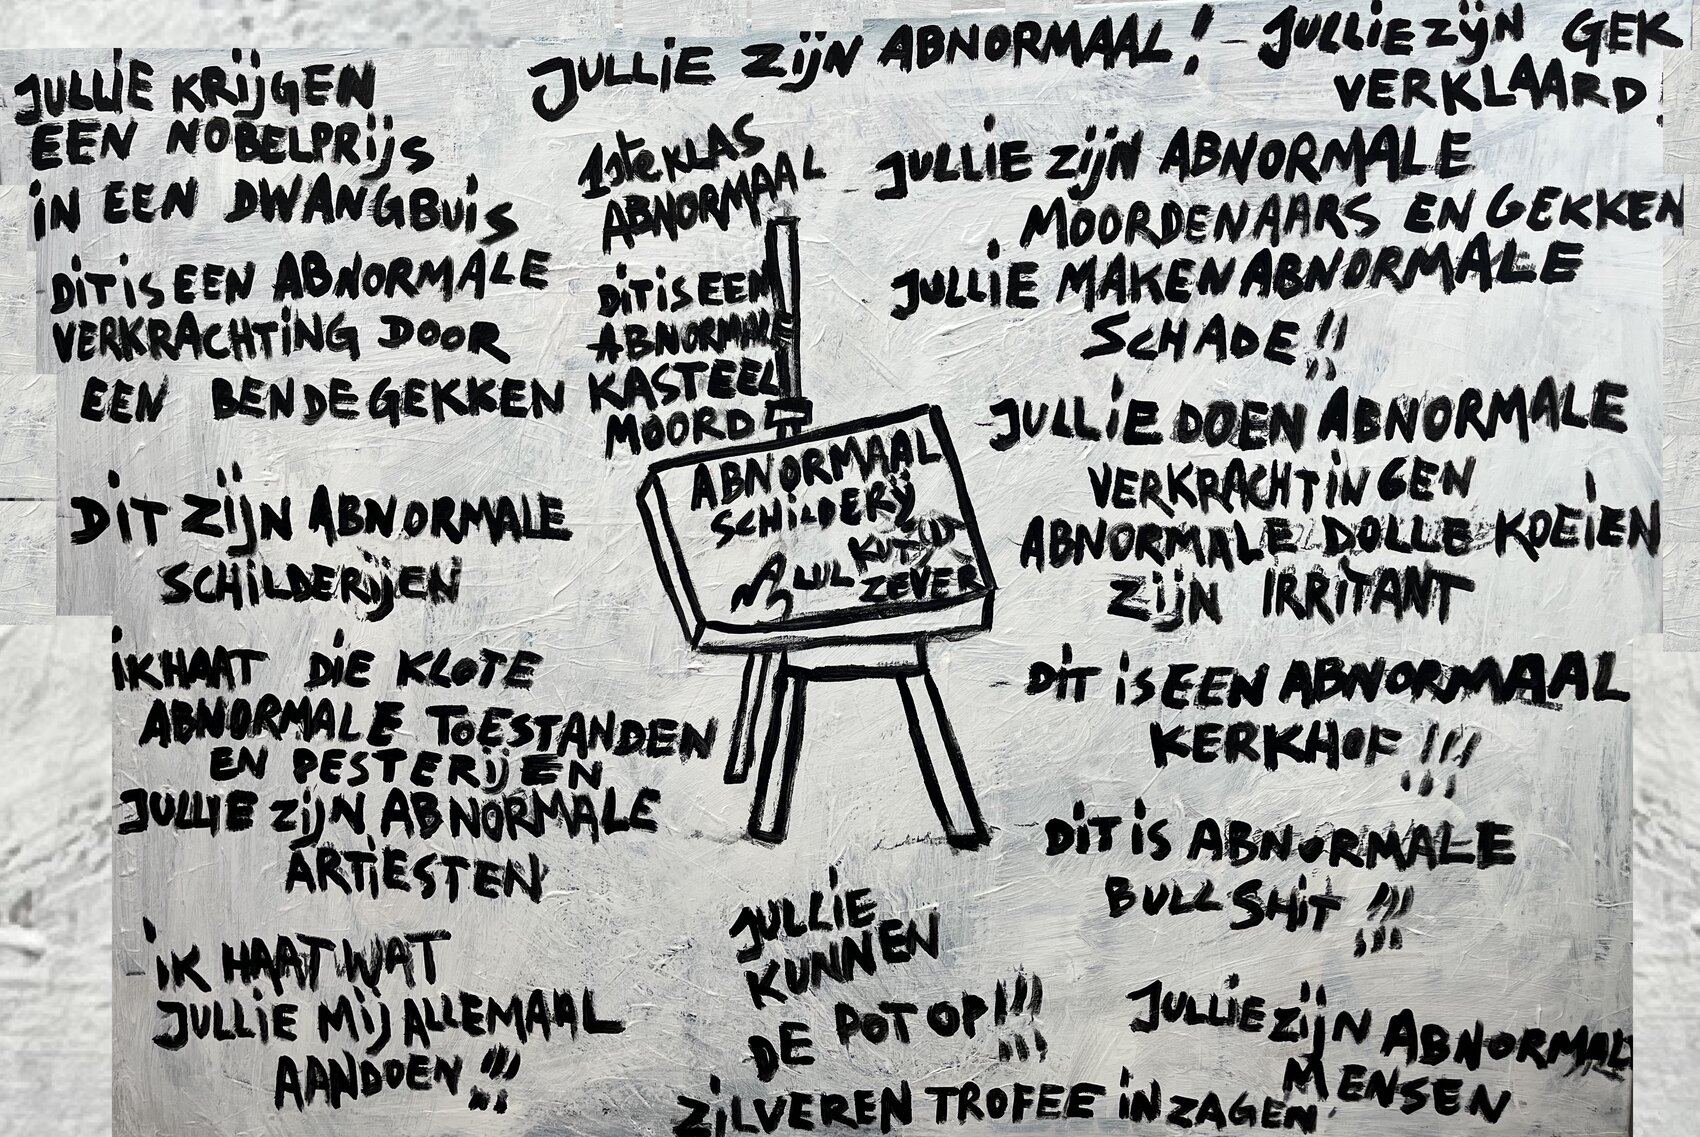 JULLIE ZIJN ABNORMAAL! - JULLIE ZIJN GEK
VERKLAARD
JULLIE KRIJGEN
EEN NOBELPRIJS
IN EEN DWANGBUIS
DIT IS EEN ABNORMALE
VERKRACHTING DOOR
EEN BENDE GEKKEN
DIT ZIJN ABNORMALE
SCHILDERIJEN
IK HAAT DIE KLOTE
ABNORMALE TOESTANDEN
EN PESTERIJEN
JULLIE ZIJN ABNORMALE
ARTIESTEN
IK HAAT WAT
JULLIE MIJ ALLEMAAL
AANDOEN!!!
1ste KLAS
ABNORMAAL
DIT IS EEN
ABNORMALE
KASTEEL
MOORD
ABNORMAAL
SCHILDERIJ
KUT
LUL
ZEVER
JULLIE
KUNNEN
DE POT OP!!!
ZILVEREN TROFEE IN ZAGEN
JULLIE ZIJN ABNORMALE
MOORDENAARS EN GEKKEN
JULLIE MAKEN ABNORMALE
SCHADE!!
JULLIE DOEN ABNORMALE
VERKRACHTINGEN
ABNORMALE DOLLE KOEIEN
ZIJN IRRITANT
DIT IS EEN ABNORMAAL
KERKHOF!!!
DIT IS ABNORMALE
BULLSHIT!!!
JULLIE ZIJN ABNORMAL
MENSEN